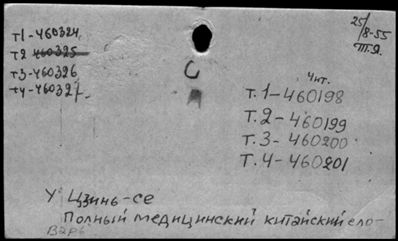 т1-460324
т2 460325
т3-460326
т4-460327
25/8-55
Т.Я.
С
Чит.
Т.1-460198
Т.2-460199
Т.3-460200
Т.4-460201
У Цзинь-се
Полный медицинский китайский сло-
варь